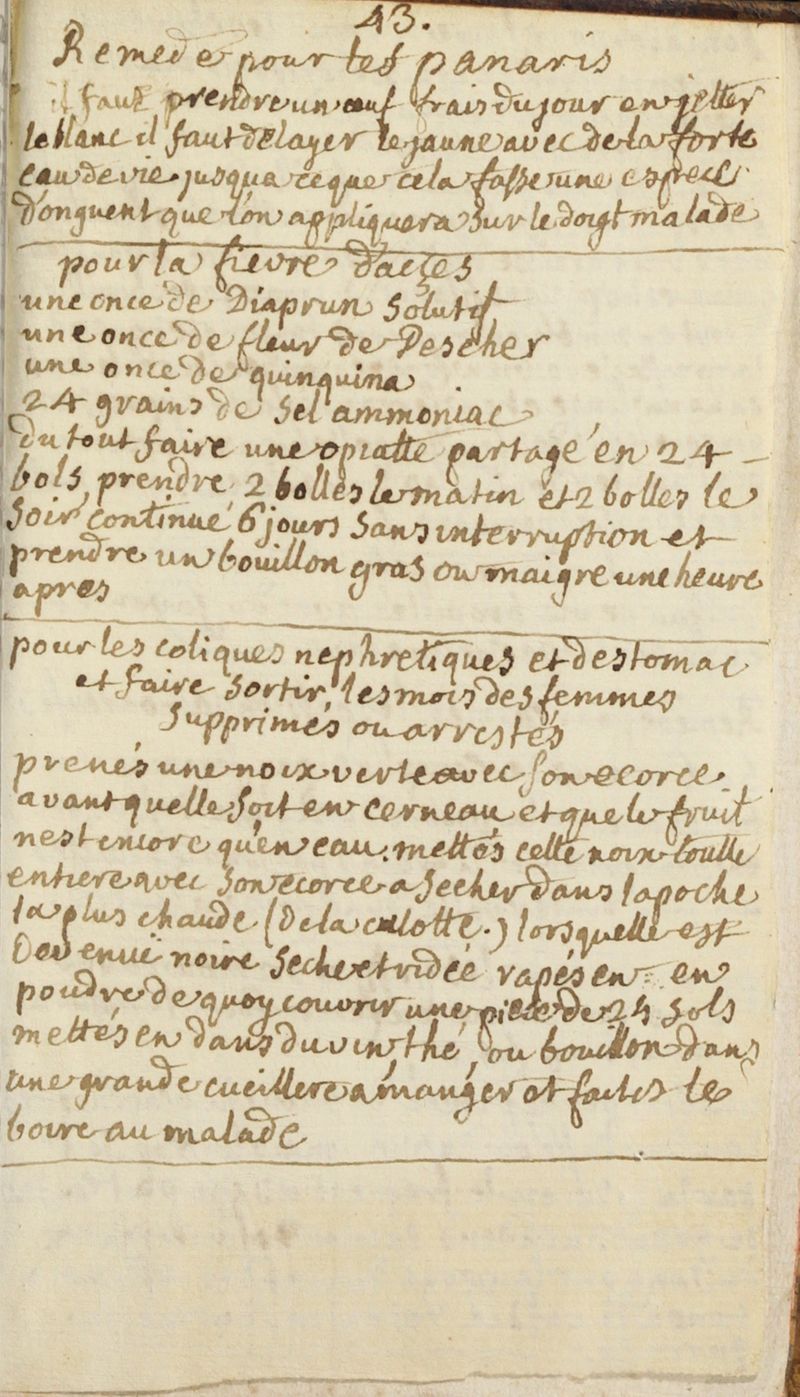 43.
Remede pour les panaris
il faut prendre un œuf frais du jour en jetter
le blanc il faut delayer le jaune avec de la forte
eau de vie jusqua ce que cela fasse une espece
d'onguent que l'on appliquera sur le doigt malade
pour la fievre d'acçes
une once de Diaprun solutif
une once de fleur de Pescher
une once de quinquina
24 grains de sel ammoniac
du tout faire une opiatte partagé en 24
bols, prendre 2 bolles le matin et 2 bolles le
soir continué 6 jours sans interruption et
prendre un bouillon gras ou maigre une heure
apres
pour les coliques nephretiques et destomac
et faire sortir, les mois des femmes
supprimés ou arrestés
prenés une noix verte avec son ecorce
avant quelle soit en cerneau et que le fruit
nest encore qu'en eau. mettés cette noix toutte
entiere avec son ecorce a secher dans la poche
la plus chaude (de la culotte.) lorsquelle est
devenue noire seche et ridée rapés en en
poudre de quoy couvrir une piece de 24 sols
mettés en dans du vin, thé, ou bouillon dans
une grande cueillere a manger et faites le
boire au malade